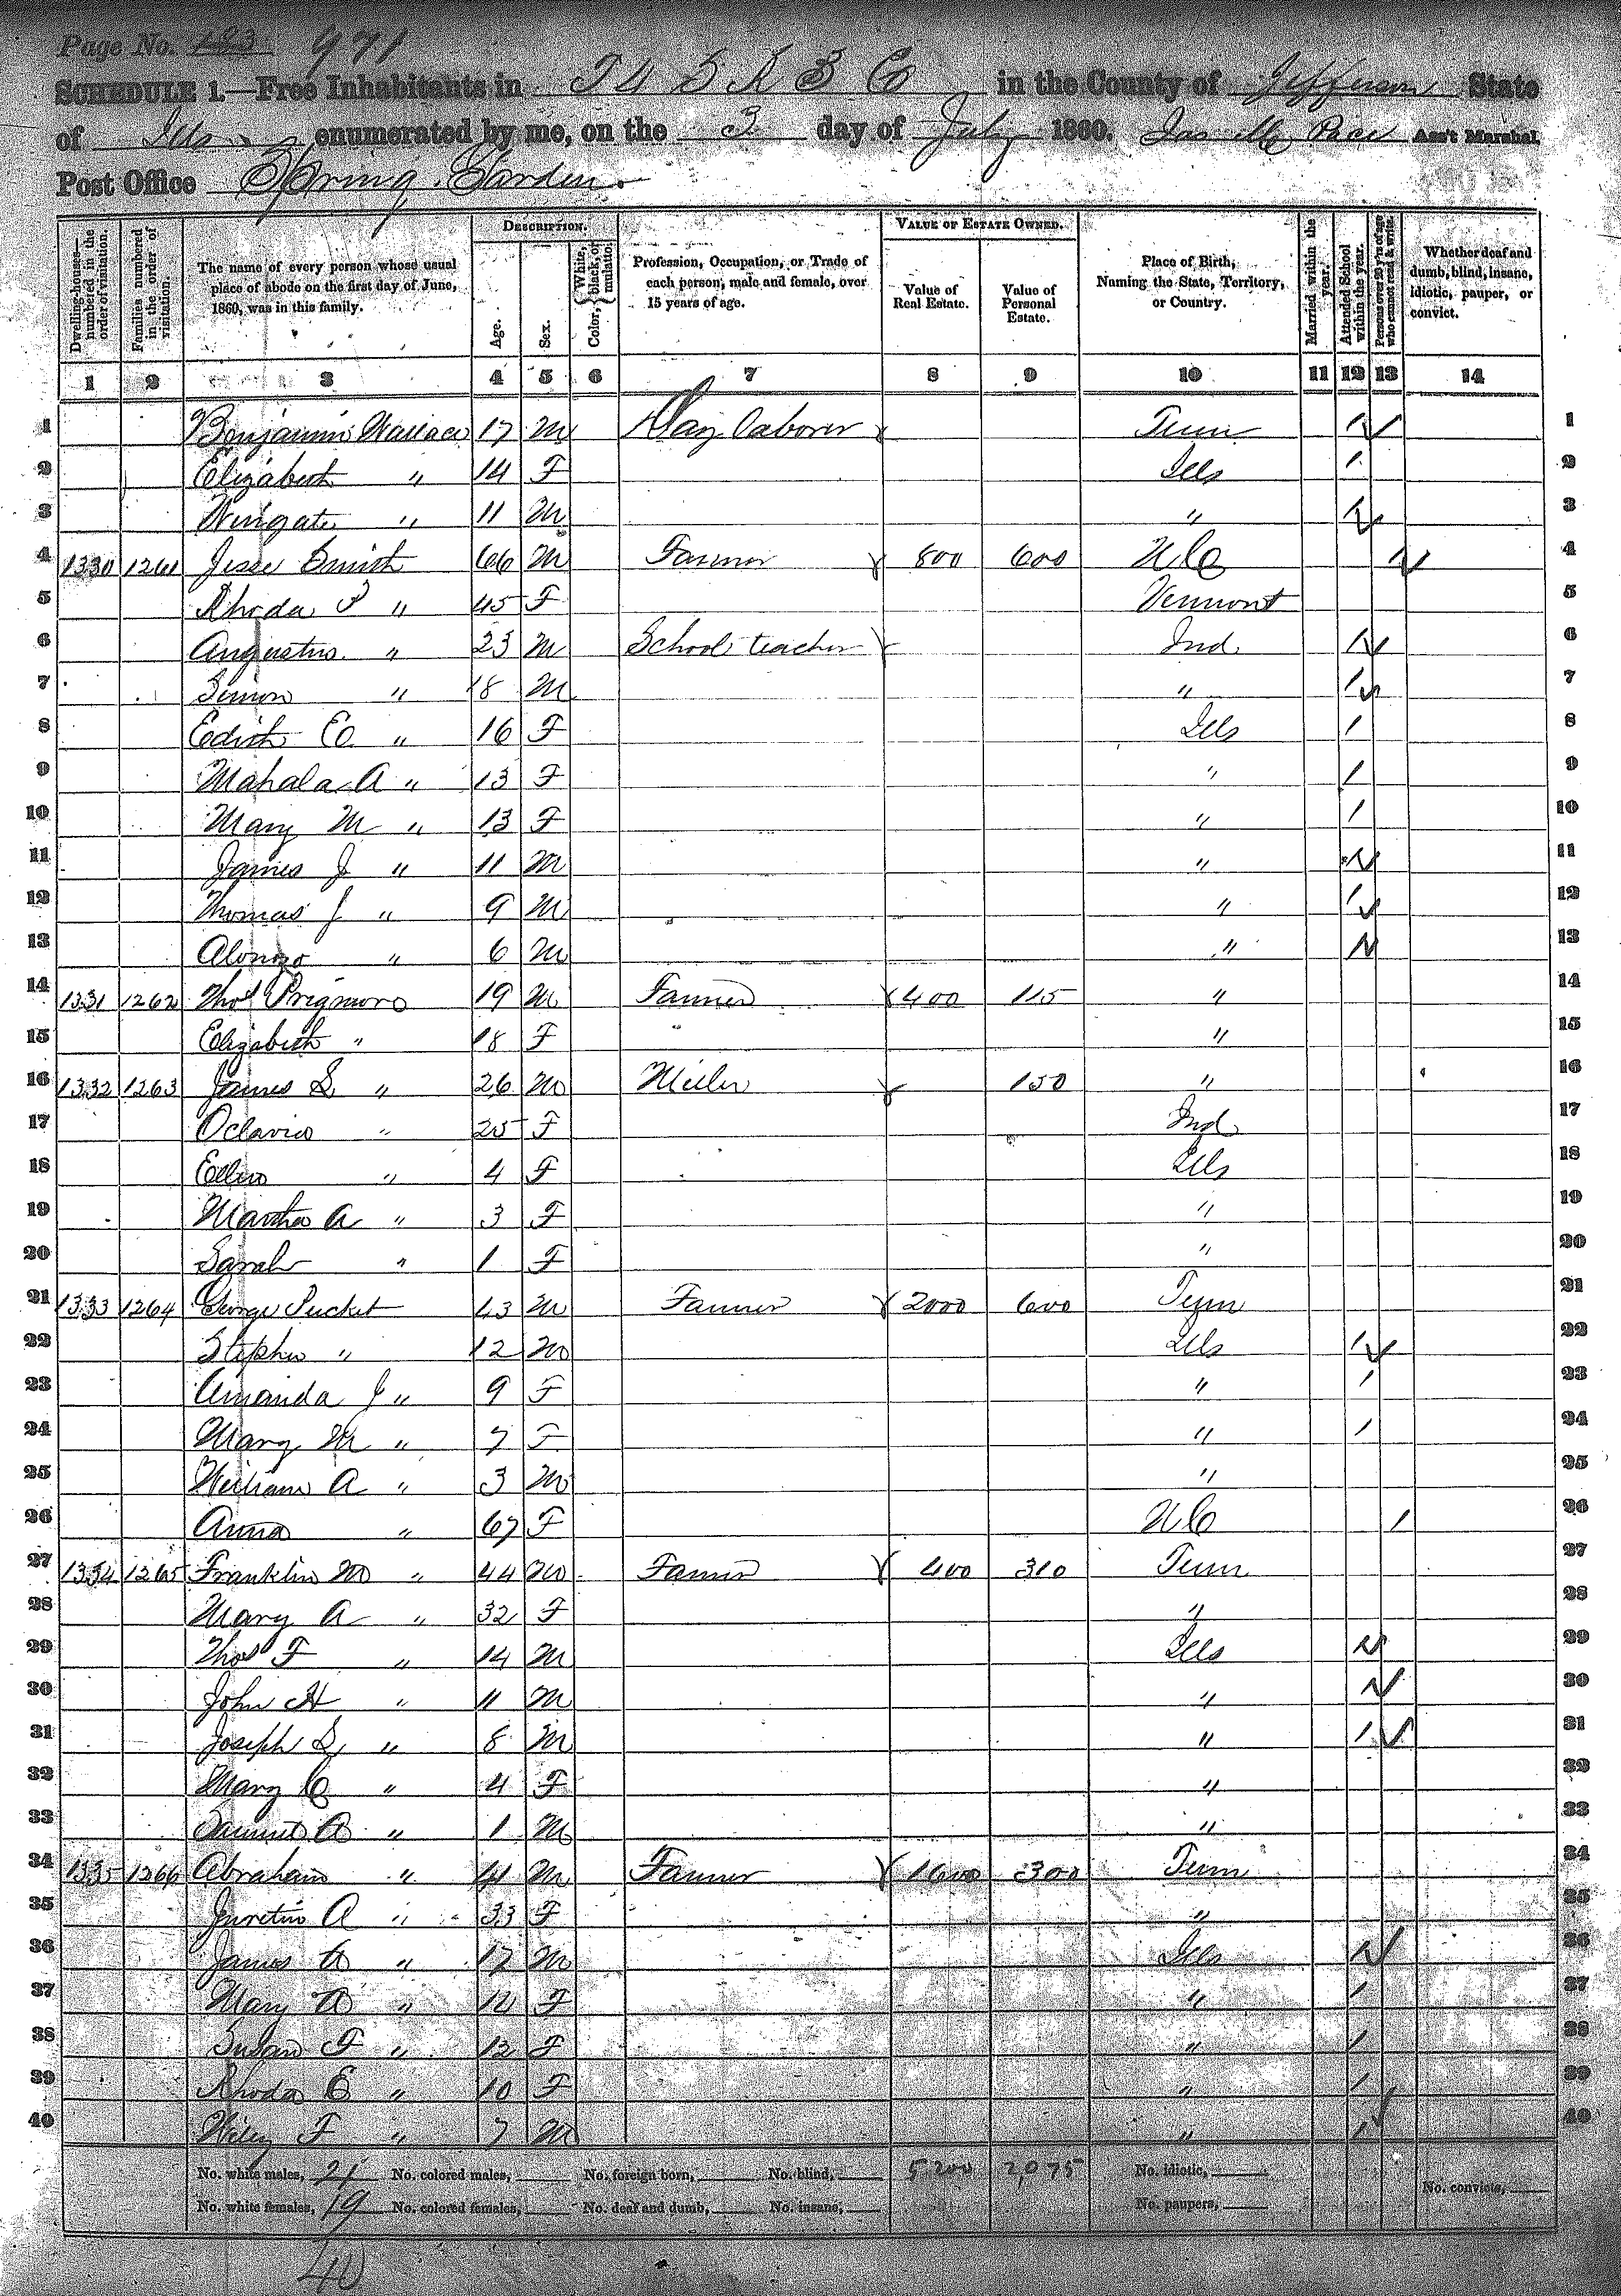 Page No. 123 971
SCHEDULE 1.—Free Inhabitants in T 4 S R 3 Co in the County of Jefferson State
of Ills enumerated by me, on the 3 day of July 1860. Pace Ass't Marshal.
Post Office Spring Garden.
Dwelling-houses—numbered in the order of visitation.
Families numbered in the order of visitation.
The name of every person whose usual place of abode on the first day of June, 1860, was in this family.
DESCRIPTION.
Age.
Sex.
Color, { White, black, or mulatto.
Profession, Occupation, or Trade of each person, male and female, over 15 years of age.
VALUE OF ESTATE OWNED.
Value of Real Estate.
Value of Personal Estate.
Place of Birth, Naming the State, Territory, or Country.
Married within the year.
Attended School within the year.
Persons over 20 y'rs of age who cannot read & write.
Whether deaf and dumb, blind, insane, idiotic, pauper, or convict.
1 2 3 4 5 6 7 8 9 10 11 12 13 14
1 Benjamin Wallace 17 M Day laborer Tenn 1 1
2 Elizabeth " 14 F Ills 1 2
3 Wingate " 11 M " 1 3
4 1330 1261 Jesse Smith 66 M Farmer 800 600 N C 1 4
5 Rhoda P " 45 F Vermont 5
6 Augustus " 23 M School teacher Ind 1 6
7 Simon " 18 M " 1 7
8 Edith E " 16 F Ills 1 8
9 Mahala A " 13 F " 1 9
10 Mary M " 13 F " 1 10
11 James J " 11 M " 1 11
12 Thomas J " 9 M " 1 12
13 Alonzo " 6 M " 1 13
14 1331 1262 Thos Prigmore 19 M Farmer 400 115 " 14
15 Elizabeth " 18 F " 15
16 1332 1263 James S " 26 M Miller 150 " 16
17 Octavia " 25 F Ind 17
18 Ellen " 4 F Ills 18
19 Martha A " 3 F " 19
20 Sarah " 1 F " 20
21 1333 1264 George Pucket 43 M Farmer 2000 600 Tenn 21
22 Stephen " 12 M Ills 1 22
23 Amanda J " 9 F " 1 23
24 Mary M " 7 F " 1 24
25 William A " 3 M " 25
26 Anna " 67 F N C 1 26
27 1334 1265 Franklin M " 44 M Farmer 400 310 Tenn 27
28 Mary A " 32 F " 28
29 Thos F " 14 M Ills 1 29
30 John H " 11 M " 1 30
31 Joseph S " 8 M " 1 31
32 Mary C " 4 F " 32
33 A " 1 M " 33
34 1335 1266 Abraham " 41 M Farmer 1600 300 Tenn 34
35 A " 33 F " 35
36 James A " 17 M Ills 1 36
37 Mary A " F " 1 37
38 Susan F " 12 F " 1 38
39 Rhoda E " 10 F " 1 39
40 Wiley F " 7 M " 1 40
No. white males, 21 No. colored males, No. foreign born, No. blind, 5200 2,075 No. idiotic,
No. white females, 19 No. colored females, No. deaf and dumb, No. insane, No. paupers, No. convicts,
40